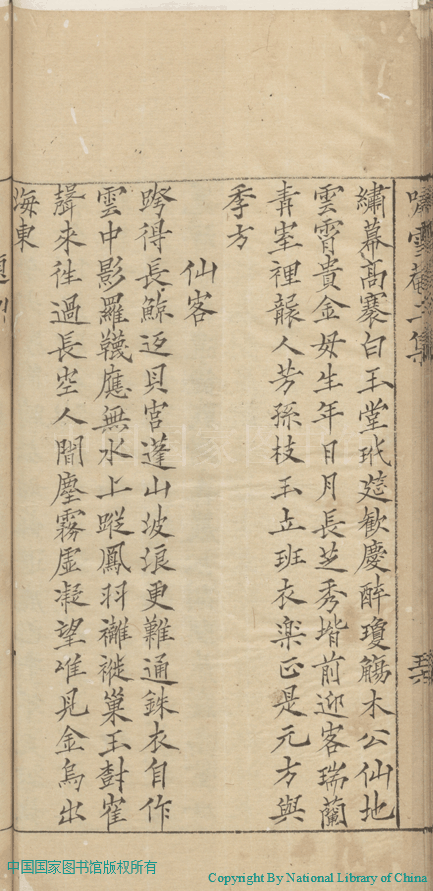 繡幕高褰白玉堂玳筵歡慶醉瓊觴木公仙地
雲霄貴金母生年日月長芝秀堦前迎客瑞蘭
青室裡襲人芳孫枝玉立班衣樂正是元方與
季方
仙客
跨得長鯨返貝宮蓬山波浪更難通銖衣自作
雲中影羅韈應無水上蹤鳳羽襳褷巢玉樹寉
聲來往過長空人間塵霧虛凝望唯見金烏出
海東
中国国家图书馆版权所有
Copyright By National Library of China